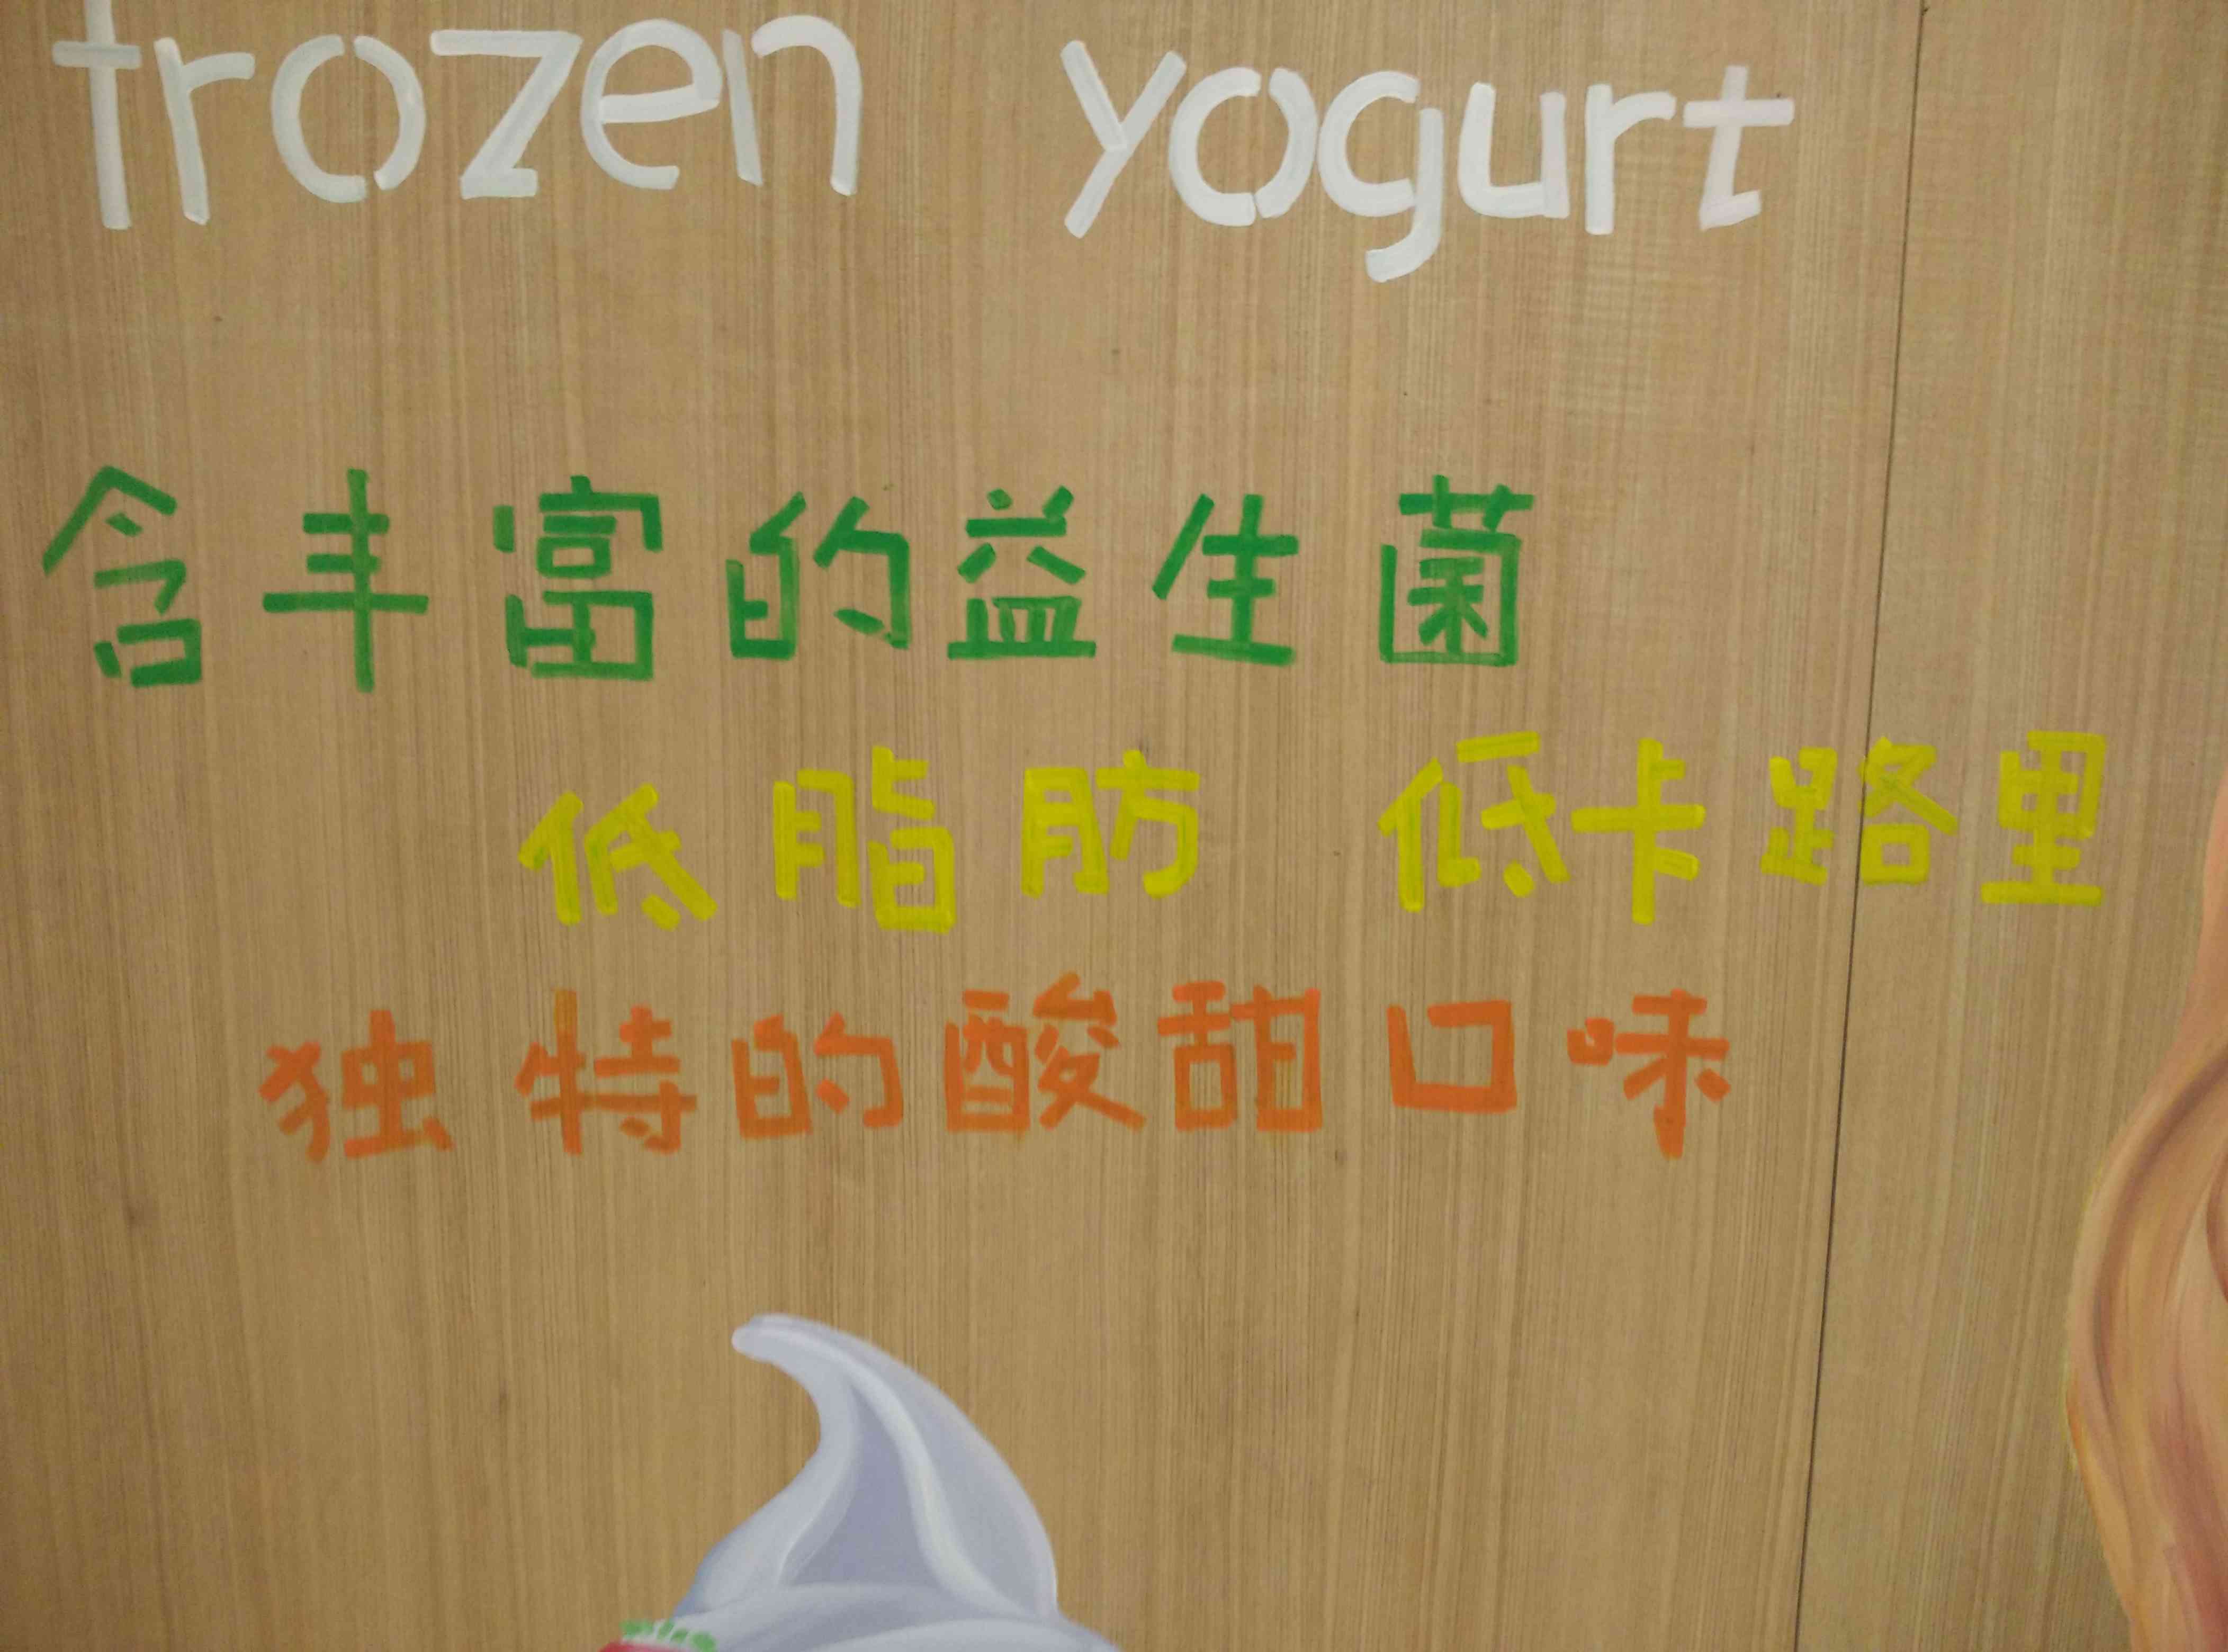 frozen yogurt
含丰富的益生菌
低脂肪 低卡路里
独特的酸甜口味